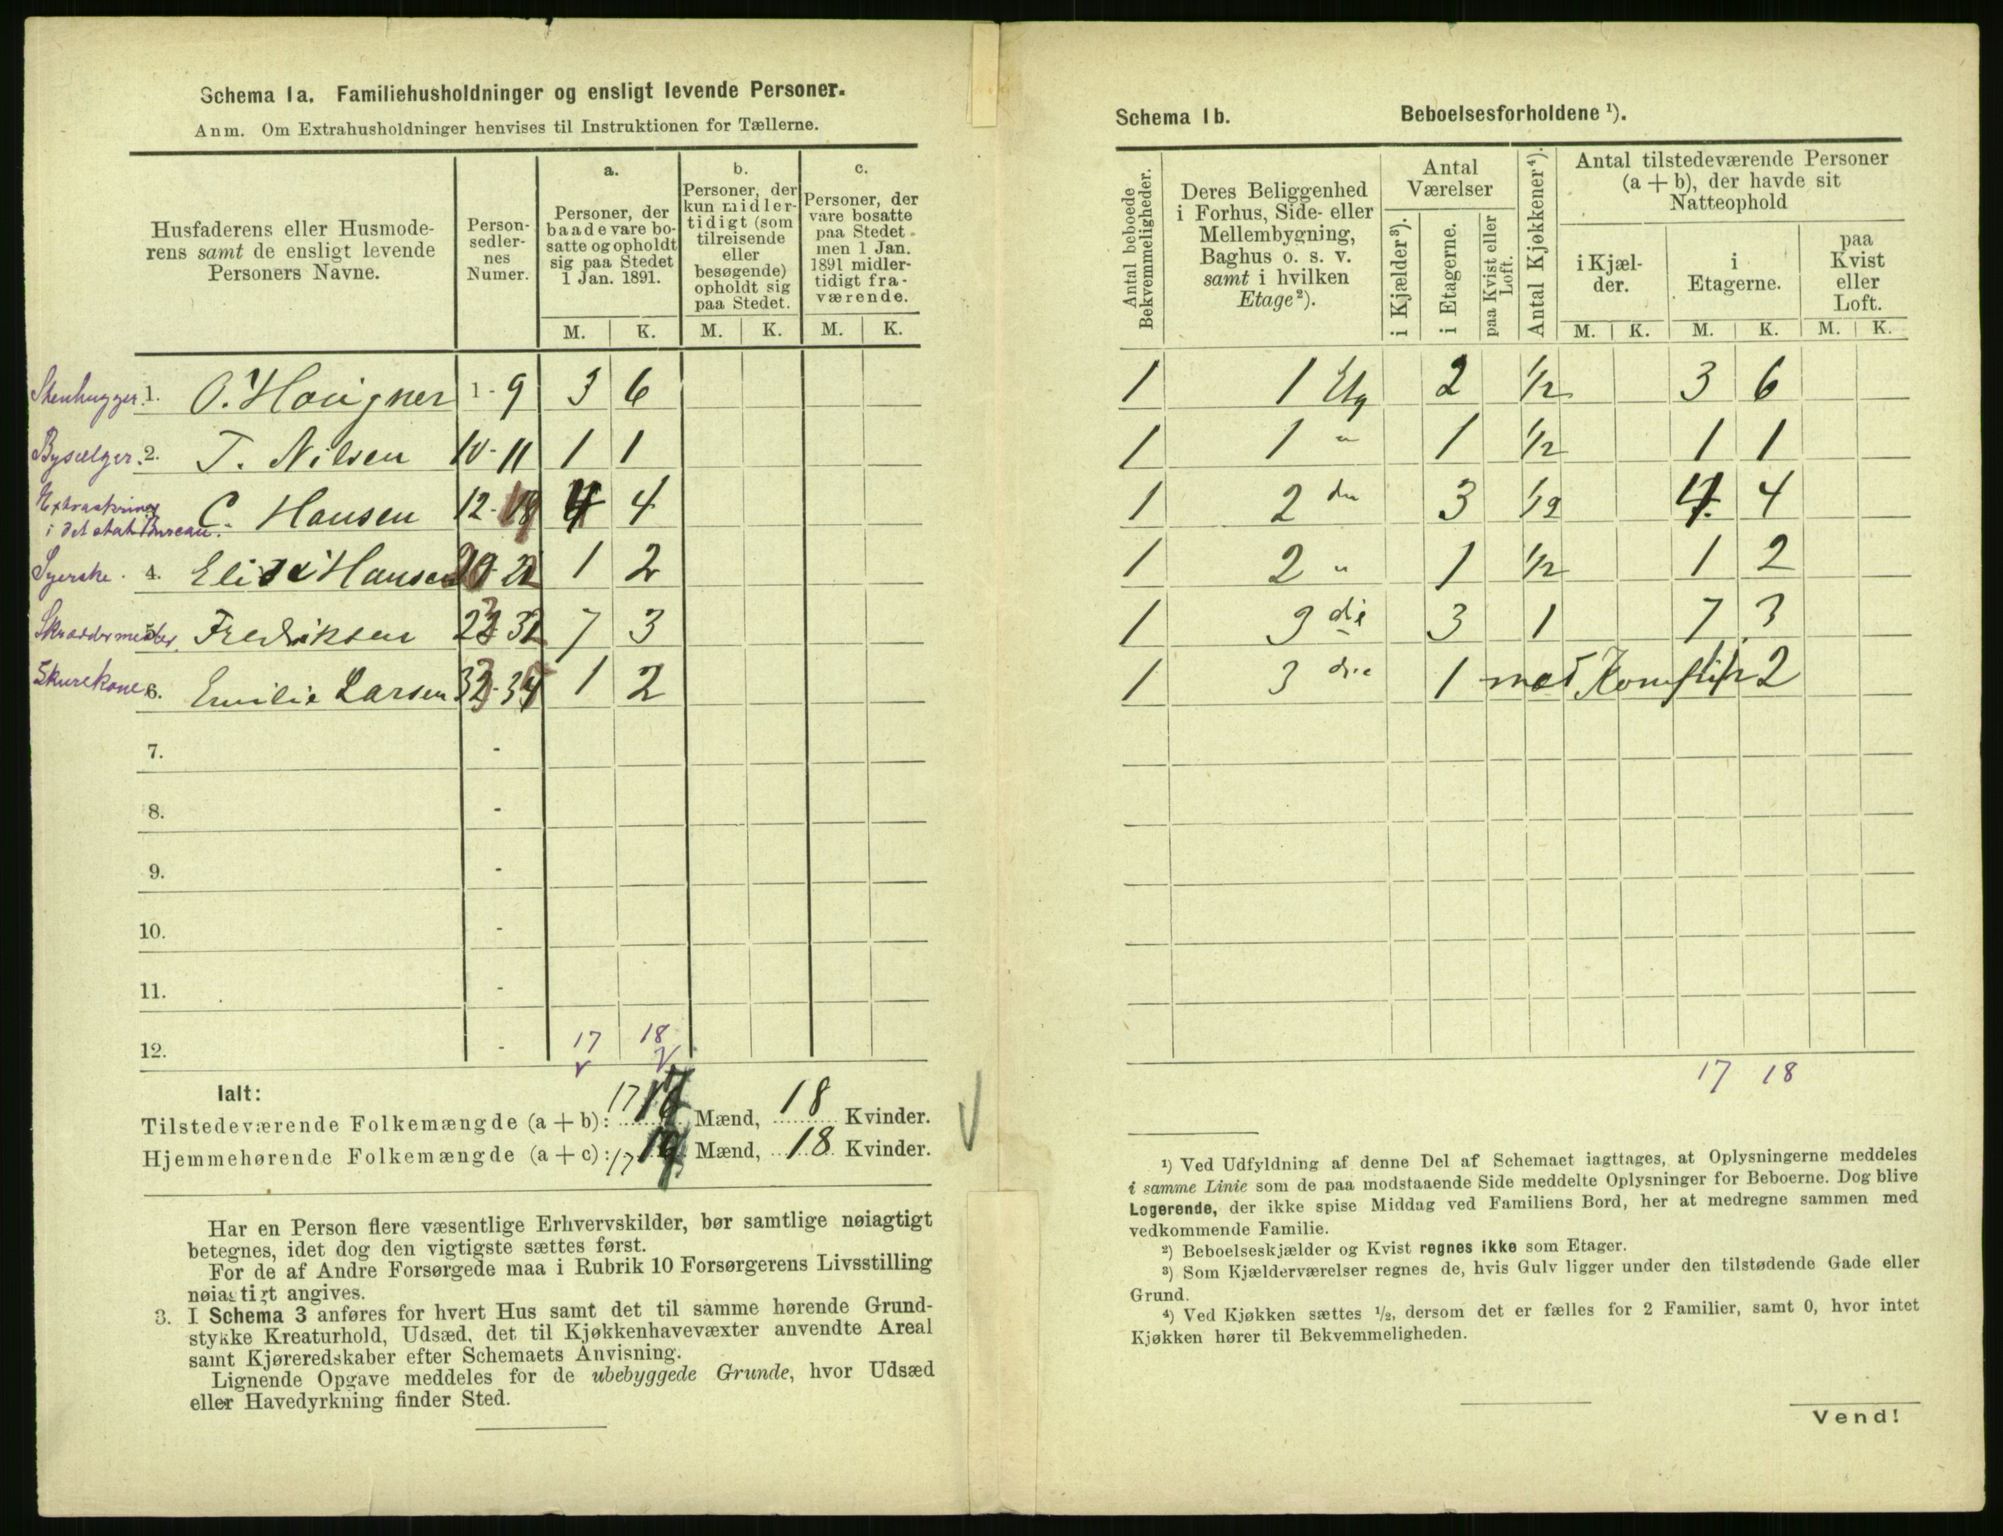 Schema 1a. Familiehusholdninger og ensligt levende Personer.
Anm. Om Extrahusholdninger henvises til Instruktionen for Tællerne.
Husfaderens eller Husmode-
rens samt de ensligt levende
Personers Navne.
Person-
sedler-
nes
Numer.
a.
Personer, der
baade vare bo-
satte og opholdt
sig paa Stedet
1 Jan. 1891.
b.
Personer, der
kun midler-
tidigt (som
tilreisende
eller
besøgende)
opholdt sig
paa Stedet.
c.
Personer, der
vare bosatte
paa Stedet
men 1 Jan.
1891 midler-
tidigt fra-
værende.
M. K. M. K. M. K.
Stenhugger 1. O. Hougner 1 - 9 3 6
Bysælger. 2. T. Nilsen 10 - 11 1 1
i det stat Bureau. C. Hansen 12 - 4 4
Syerske. 4. Hansen 1 2
Skræddermester. 5. Fredriksen 7 3
Skurekone 6. Emilie Larsen 1 2
7. -
8. -
9. -
10. -
11. -
12. - 17 18
Ialt:
Tilstedeværende Folkemængde (a + b): 17 Mænd, 18 Kvinder.
Hjemmehørende Folkemængde (a + c): 17 Mænd, 18 Kvinder.
Har en Person flere væsentlige Erhvervskilder, bør samtlige nøiagtigt
betegnes, idet dog den vigtigste sættes først.
For de af Andre Forsørgede maa i Rubrik 10 Forsørgerens Livsstilling
nøiagtigt angives.
3. I Schema 3 anføres for hvert Hus samt det til samme hørende Grund-
stykke Kreaturhold, Udsæd, det til Kjøkkenhavevæxter anvendte Areal
samt Kjøreredskaber efter Schemaets Anvisning.
Lignende Opgave meddeles for de ubebyggede Grunde, hvor Udsæd
eller Havedyrkning finder Sted.
Schema 1b. Beboelsesforholdene ¹).
Antal beboede
Bekvemmeligheder.
Deres Beliggenhed
i Forhus, Side- eller
Mellembygning,
Baghus o. s. v.
samt i hvilken
Etage²).
Antal
Værelser
i Kjælder³).
i Etagerne.
paa Kvist eller
Loft.
Antal Kjøkkener⁴).
Antal tilstedeværende Personer
(a + b), der havde sit
Natteophold
i Kjæl-
der.
i
Etagerne.
paa
Kvist
eller
Loft.
M. K. M. K. M. K.
1 1 Etg 2 1/2 3 6
1 1 " 1 1/2 1 1
1 2 den 3 1/2 4 4
1 2 " 1 1/2 1 2
1 3 die 3 1 7 3
1 3 die 1 med Komfur 2
17 18
¹) Ved Udfyldning af denne Del af Schemaet iagttages, at Oplysningerne meddeles
i samme Linie som de paa modstaaende Side meddelte Oplysninger for Beboerne. Dog blive
Logerende, der ikke spise Middag ved Familiens Bord, her at medregne sammen med
vedkommende Familie.
²) Beboelseskjælder og Kvist regnes ikke som Etager.
³) Som Kjælderværelser regnes de, hvis Gulv ligger under den tilstødende Gade eller
Grund.
⁴) Ved Kjøkken sættes 1/2, dersom det er fælles for 2 Familier, samt 0, hvor intet
Kjøkken hører til Bekvemmeligheden.
Vend!